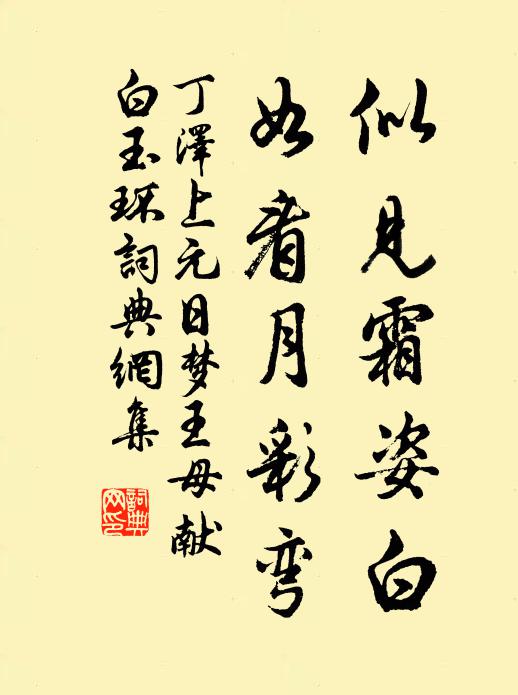 似见霜姿白
如看月彩弯
丁澤上元日梦王母献
白玉环詞典網集
詞典
网印